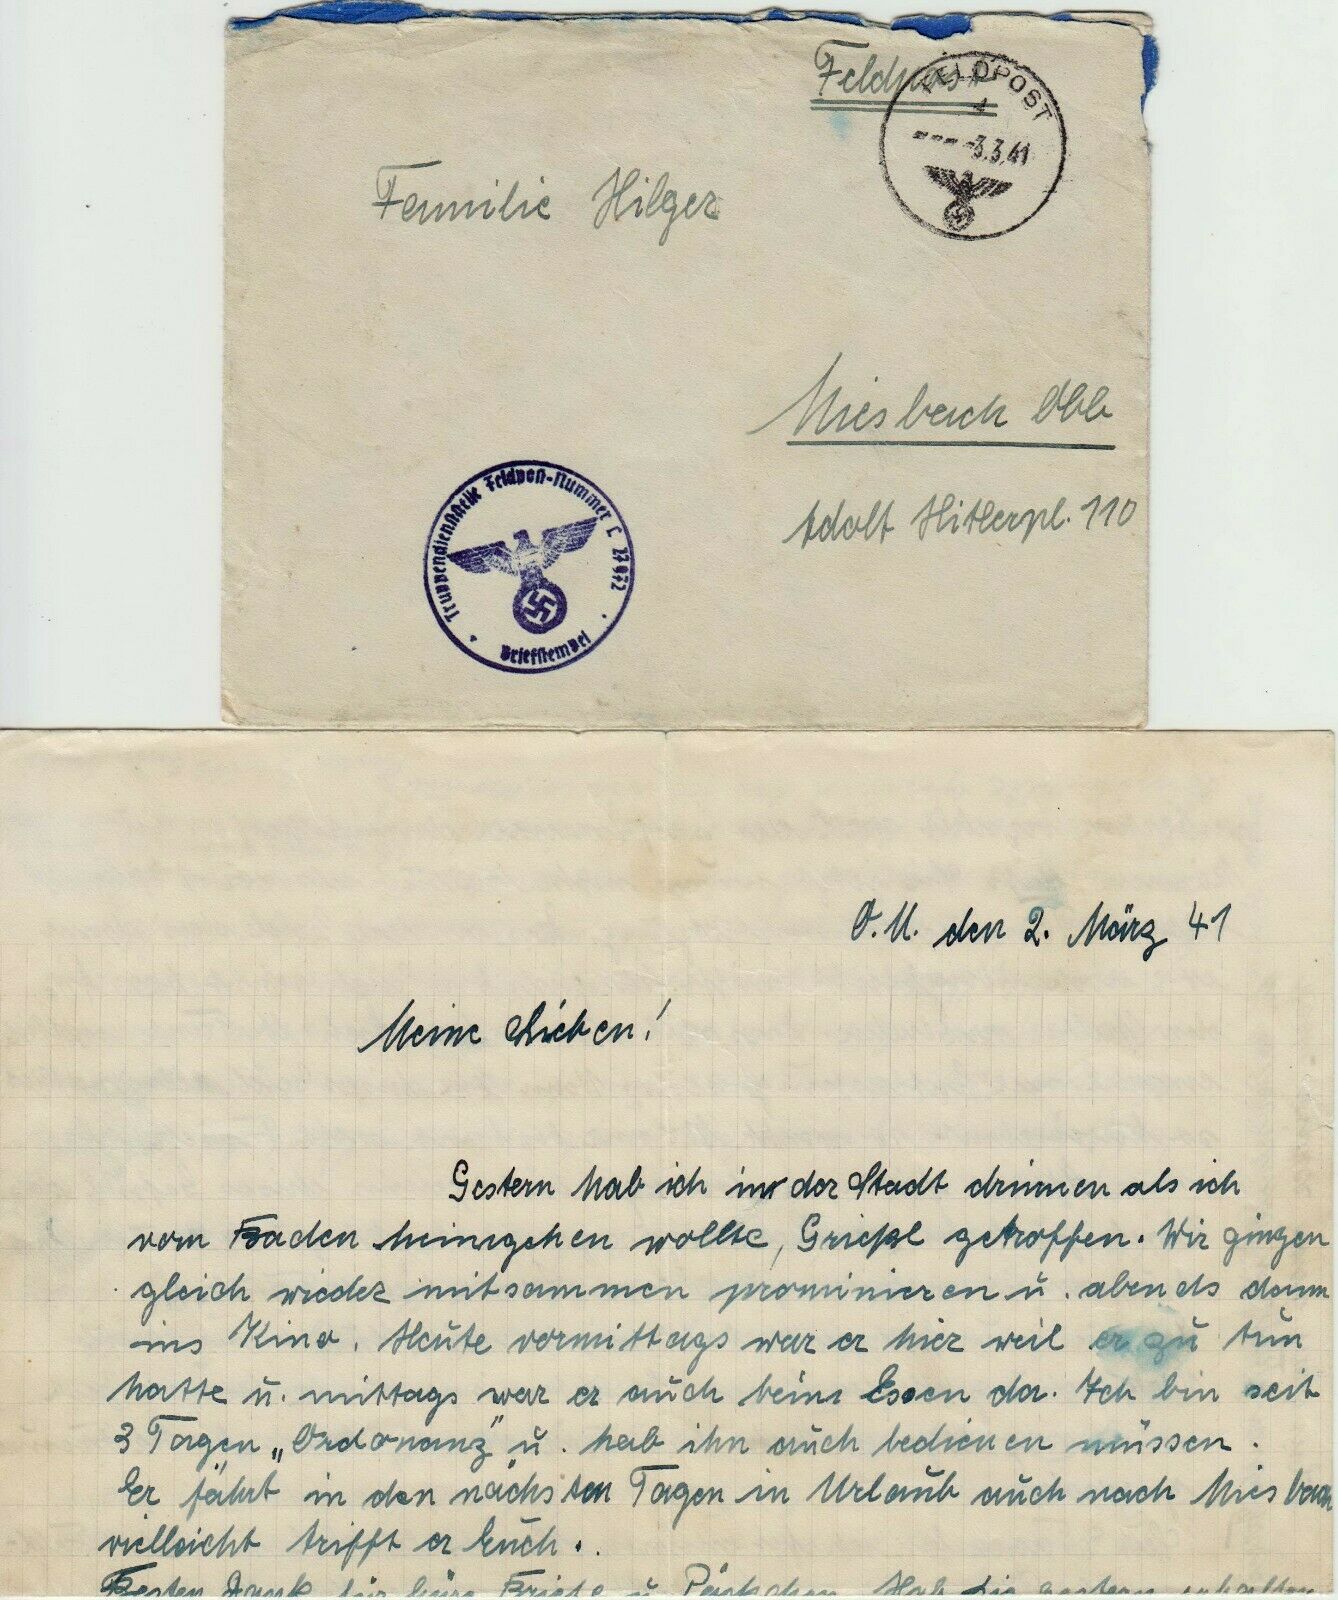 Feldpost
FELDPOST
-3.3.41
Familie Hilger
Miesbach Obb
Adolf Hitlerpl. 110
Truppendienststelle Feldpost-Nummer L 27972
Briefstempel
O.U. den 2. März 41
Meine Lieben!
Gestern hab ich in der Stadt drinnen als ich
vom Baden heimgehen wollte, Grießl getroffen. Wir gingen
gleich wieder mitsammen prominieren u. abends dann
ins Kino. Heute vormittags war er hier weil er zu tun
hatte u. mittags war er auch beim Essen da. Ich bin seit
3 Tagen „Ordonanz" u. hab ihn auch bedienen müssen.
Er fährt in den nächsten Tagen in Urlaub auch nach Miesbach
vielleicht trifft er Euch.
Besten Dank für Eure Briefe u. Päckchen. Hab sie gestern erhalten